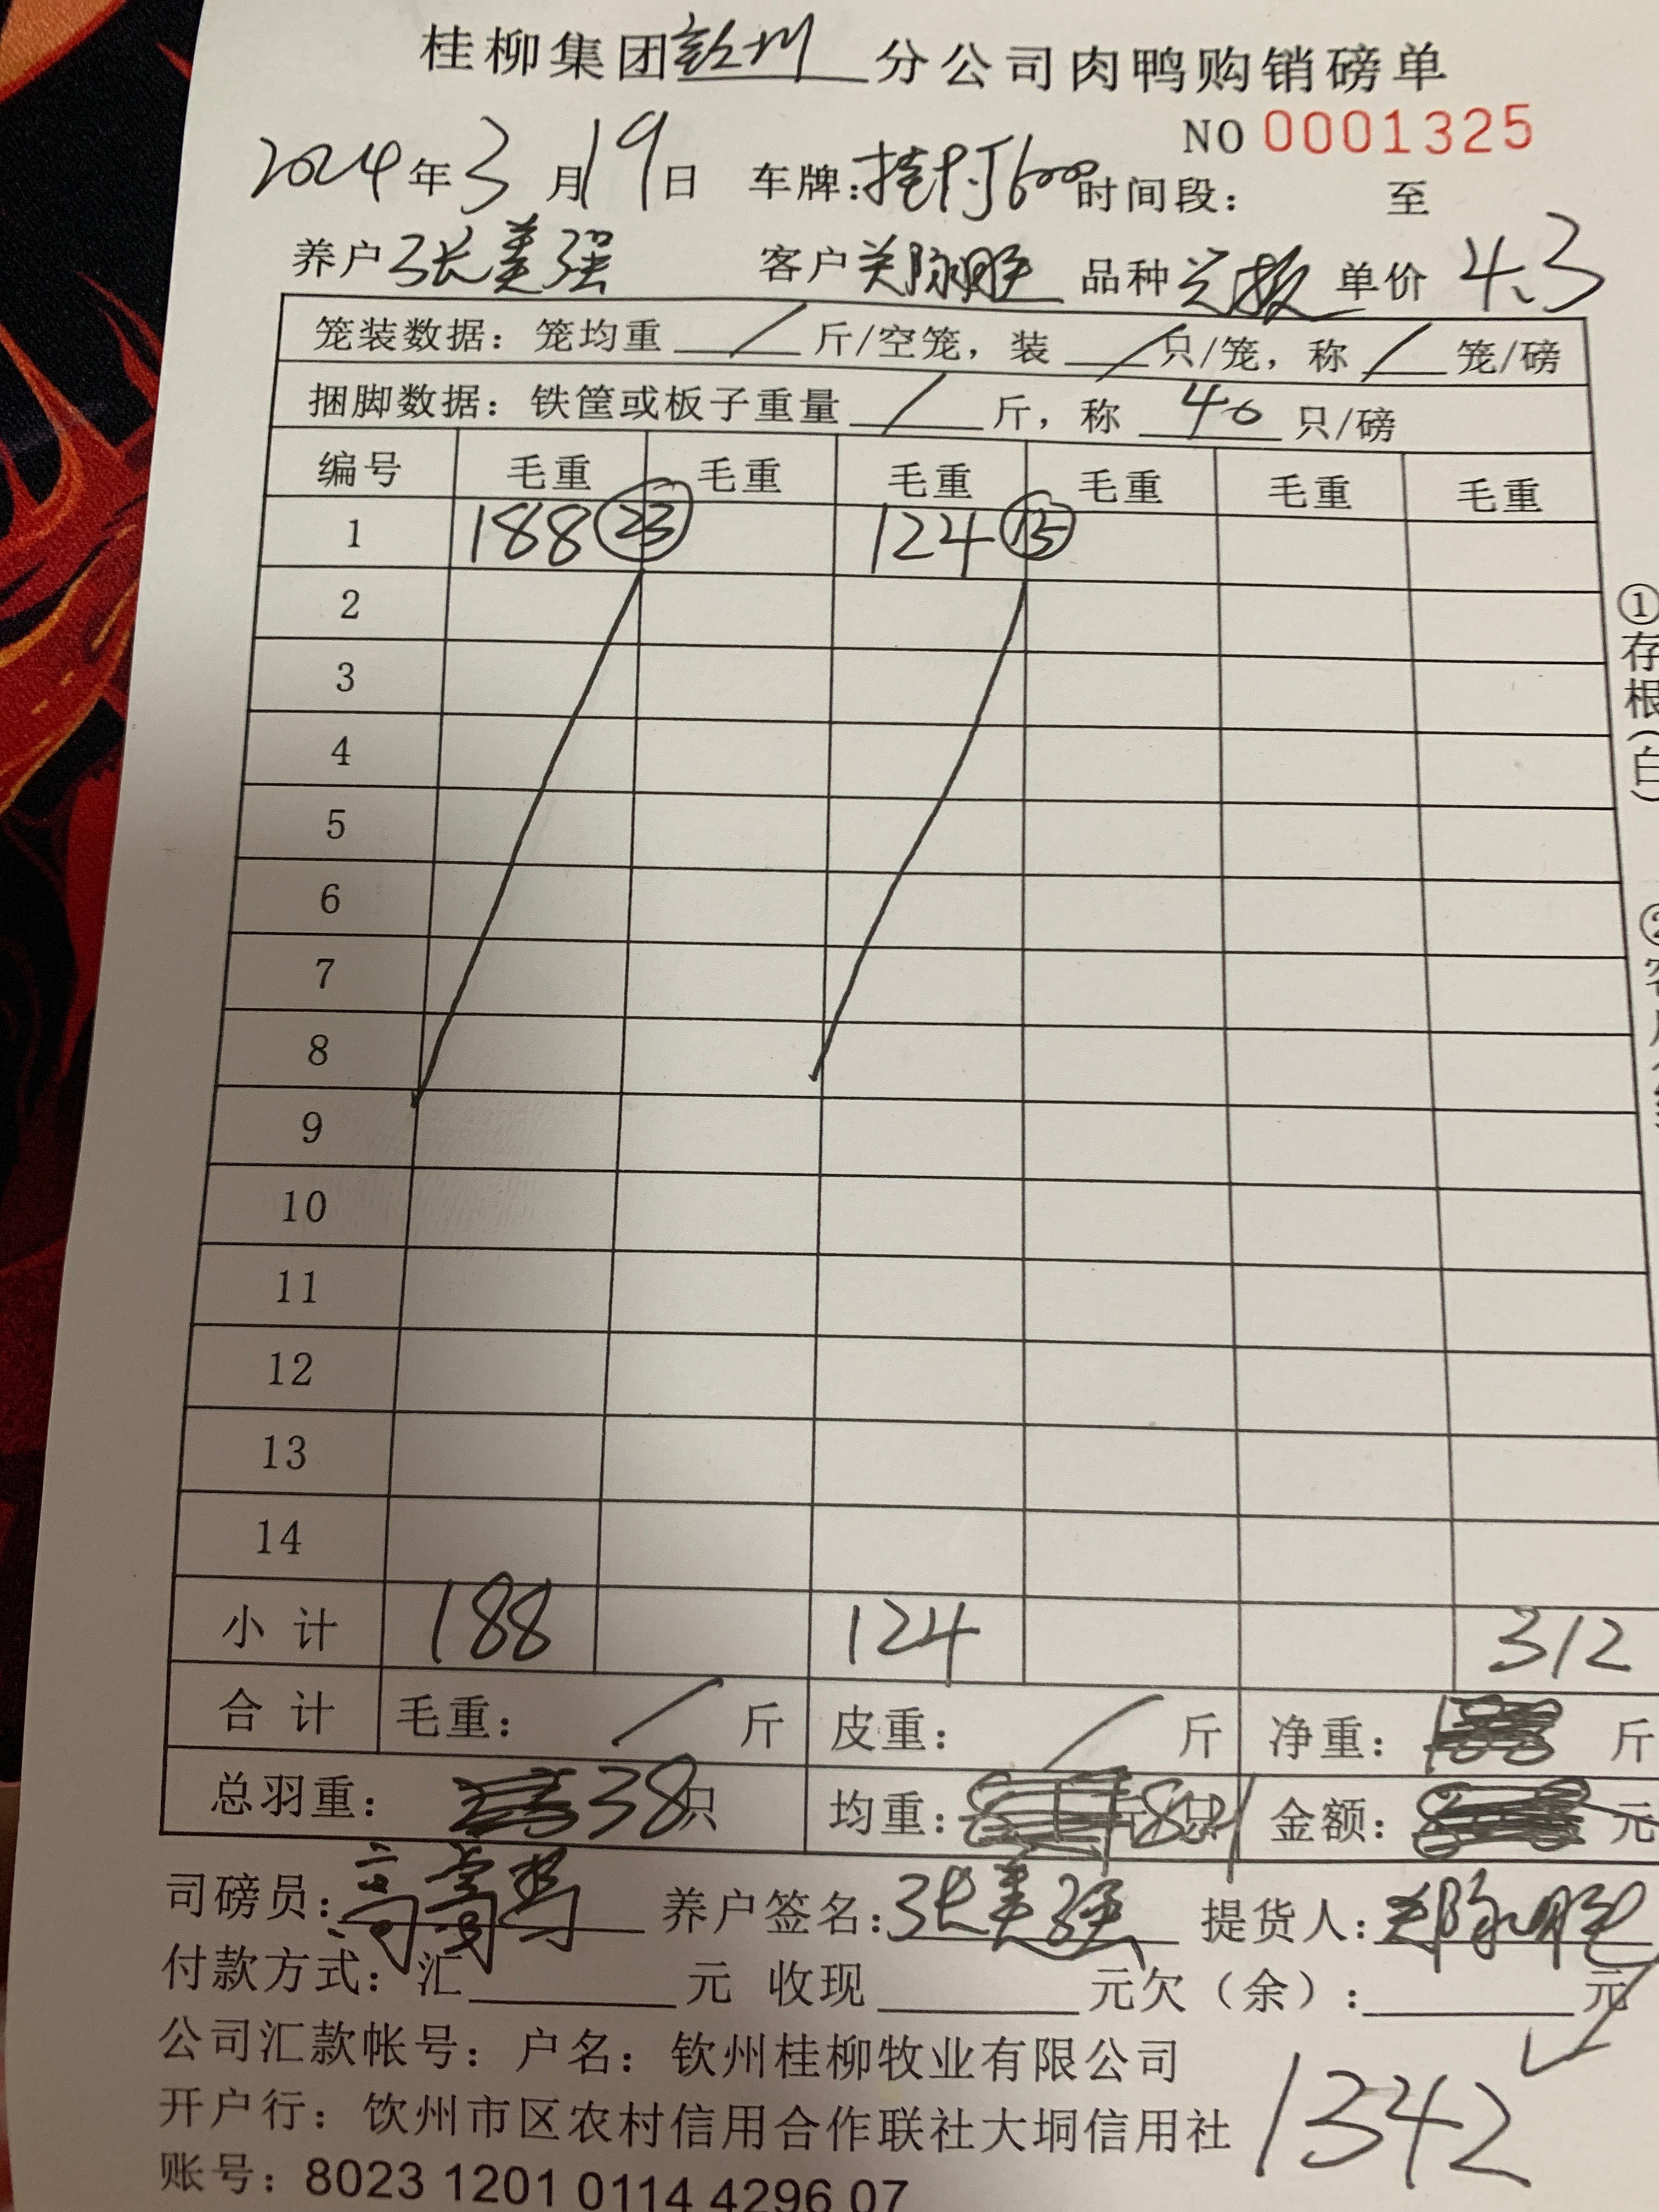 桂柳集团钦州分公司肉鸭购销磅单
NO 0001325
2024年3月19日 车牌: 600 时间段: 至
养户张美强 客户 品种 单价 4.3
笼装数据: 笼均重 / 斤/空笼, 装 / 只/笼, 称 / 笼/磅
捆脚数据: 铁筐或板子重量 / 斤, 称 40 只/磅
编号 毛重 毛重 毛重 毛重 毛重 毛重
1 188 23 124 15
2
3
4
5
6
7
8
9
10
11
12
13
14
小计 188 124 312
合计 毛重: / 斤 皮重: / 斤 净重: 斤
总羽重: 38只 均重: 8.21 金额: 元
司磅员: 养户签名: 张美强 提货人:
付款方式: 汇 元 收现 元欠(余): 元
公司汇款帐号: 户名: 钦州桂柳牧业有限公司
开户行: 钦州市区农村信用合作联社大垌信用社
1342
账号: 8023 1201 0114 4296 07
①存根(白)
②客户